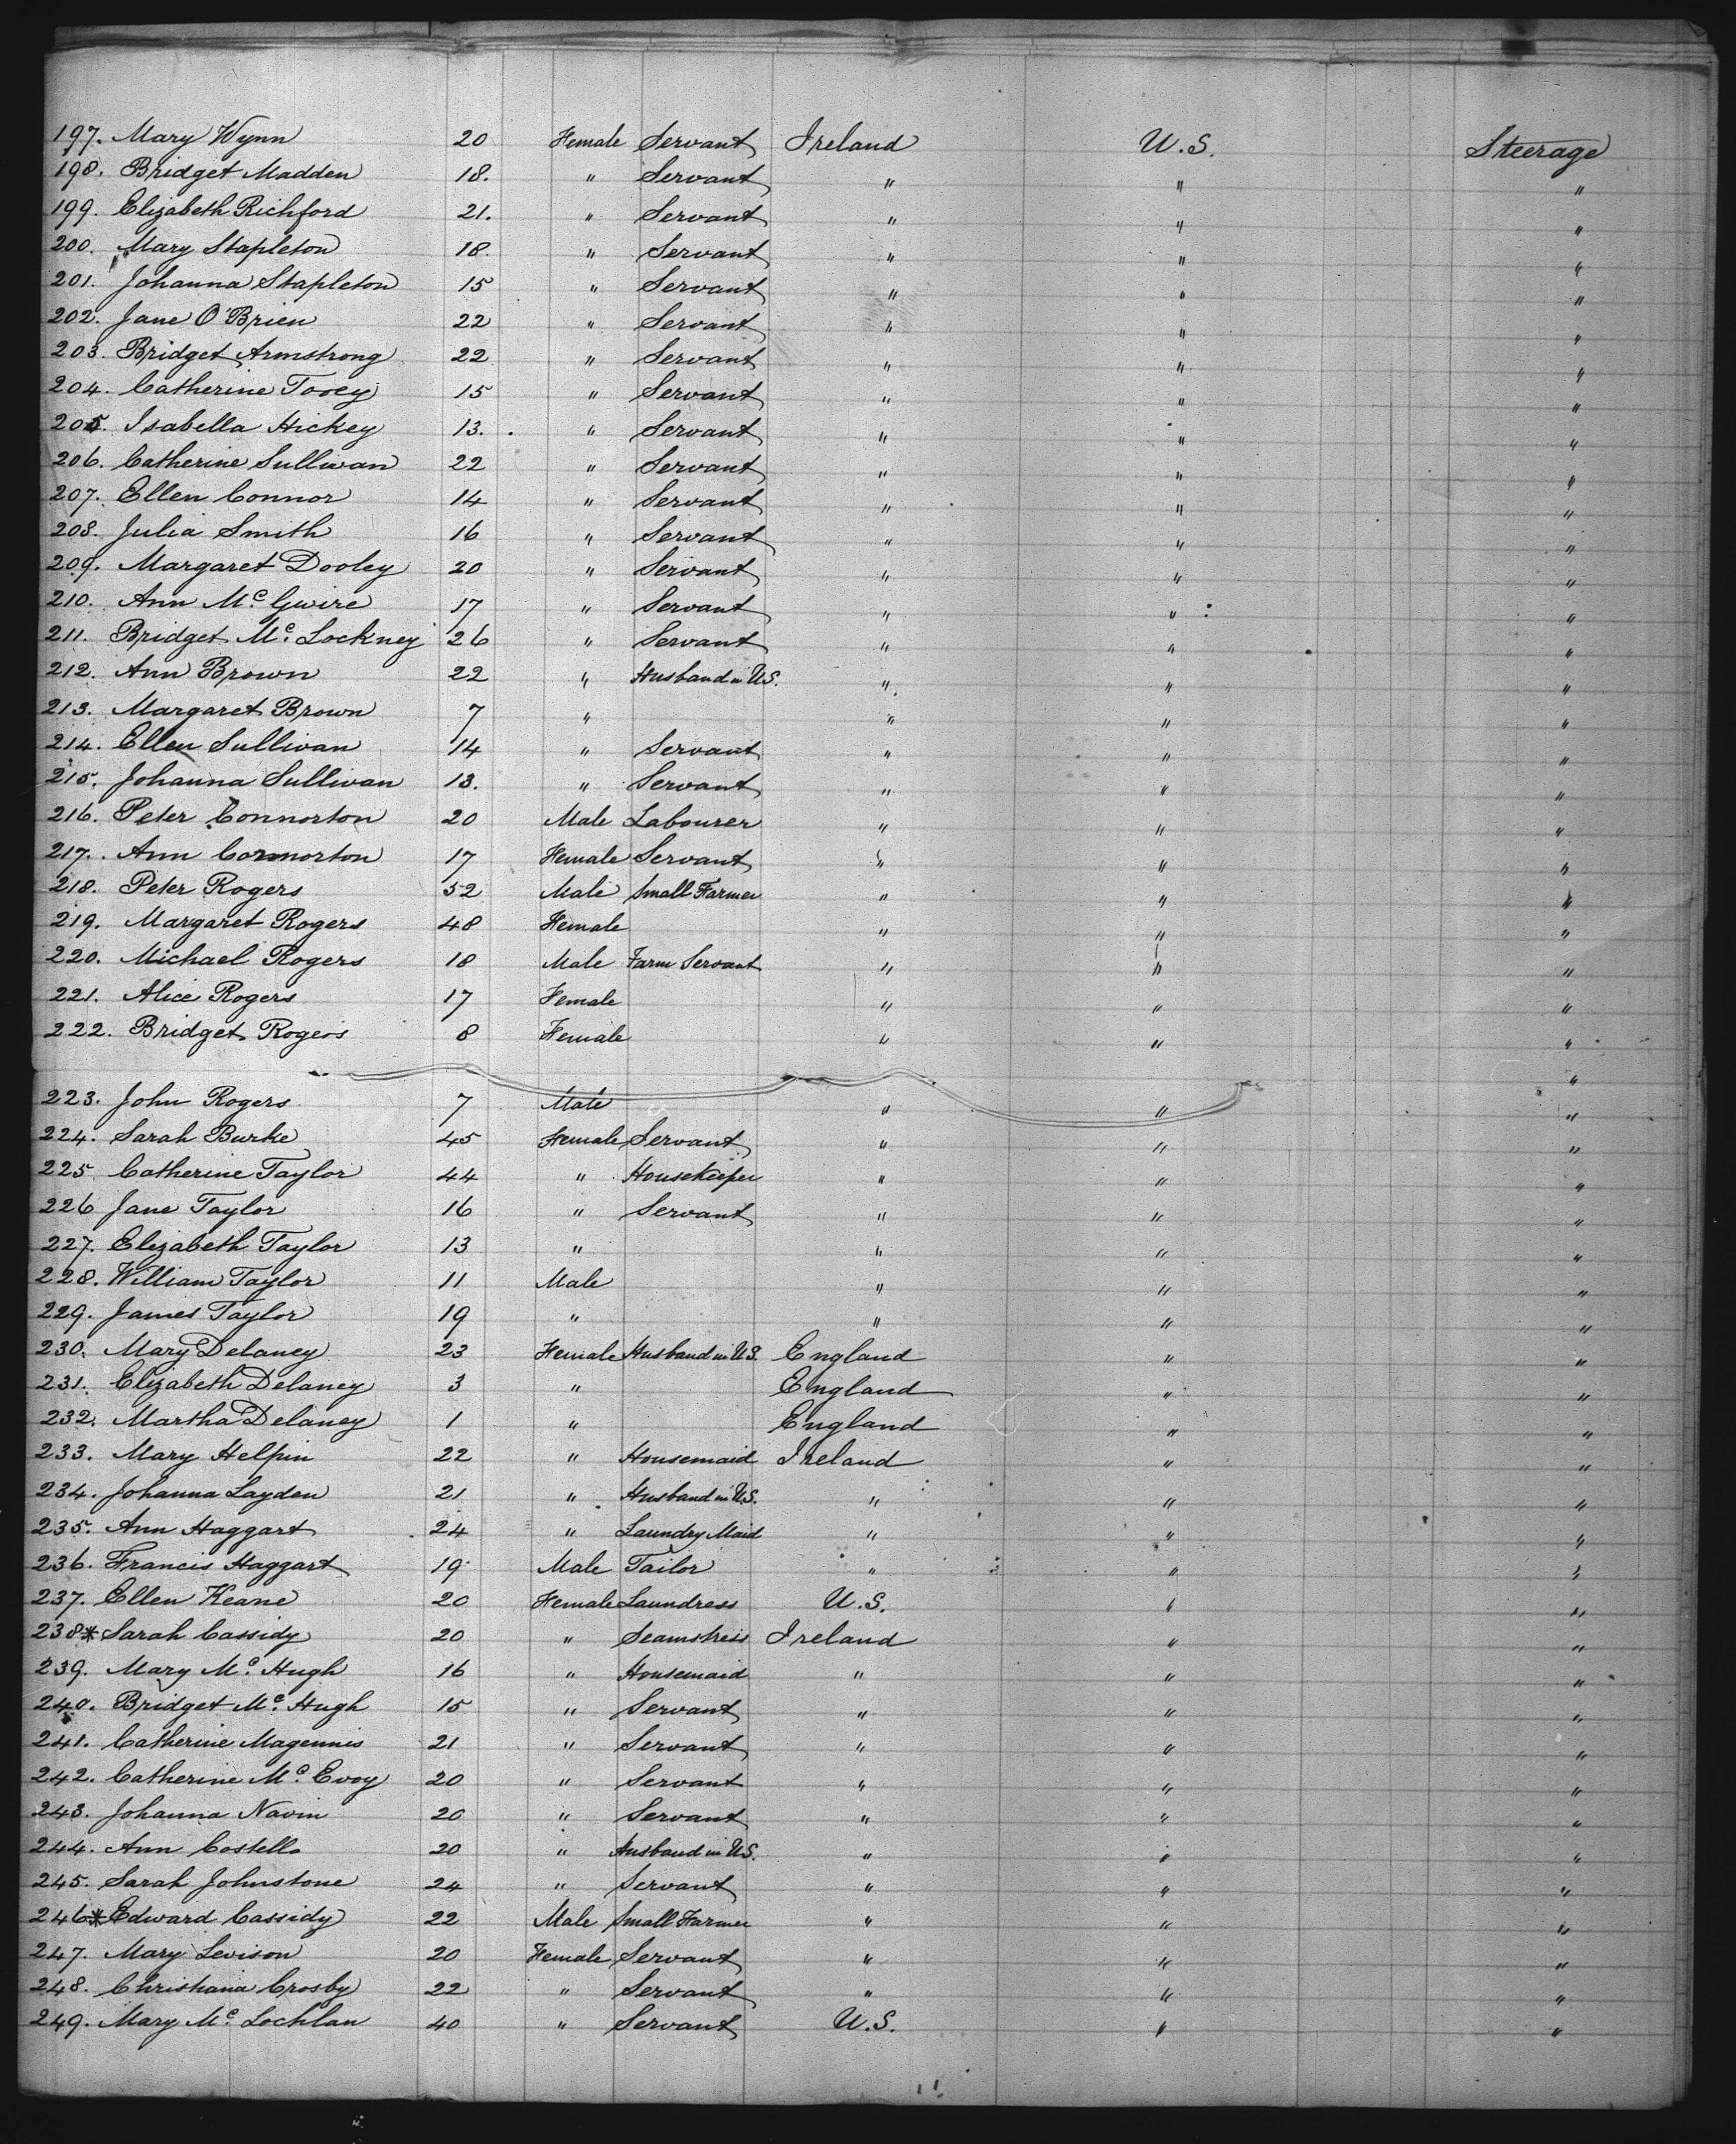 197. Mary Wynn 20 Female Servant Ireland U.S. Steerage
198. Bridget Madden 18. " Servant " " "
199. Elizabeth Richford 21. " Servant " " "
200. Mary Stapleton 18. " Servant " " "
201. Johanna Stapleton 15 " Servant " " "
202. Jane O'Brien 22 " Servant " " "
203. Bridget Armstrong 22 " Servant " " "
204. Catherine Tooey 15 " Servant " " "
205. Isabella Hickey 13. " Servant " " "
206. Catherine Sullivan 22 " Servant " " "
207. Ellen Connor 14 " Servant " " "
208. Julia Smith 16 " Servant " " "
209. Margaret Dooley 20 " Servant " " "
210. Ann Mc. Gwire 17 " Servant " " "
211. Bridget Mc. Lockney 26 " Servant " " "
212. Ann Brown 22 " Husband in U.S. " " "
213. Margaret Brown 7 " " " "
214. Ellen Sullivan 14 " Servant " " "
215. Johanna Sullivan 13. " Servant " " "
216. Peter Connorton 20 Male Labourer " " "
217. Ann Connorton 17 Female Servant " " "
218. Peter Rogers 52 Male Small Farmer " " "
219. Margaret Rogers 48 Female " " "
220. Michael Rogers 18 Male Farm Servant " " "
221. Alice Rogers 17 Female " " "
222. Bridget Rogers 8 Female " " "
"
223. John Rogers 7 Male " " "
224. Sarah Burke 45 Female Servant " " "
225 Catherine Taylor 44 " Housekeeper " " "
226 Jane Taylor 16 " Servant " " "
227. Elizabeth Taylor 13 " " " "
228. William Taylor 11 Male " " "
229. James Taylor 19 " " " "
230. Mary Delaney 23 Female Husband in U.S. England " "
231. Elizabeth Delaney 3 " England " "
232. Martha Delaney 1 " England " "
233. Mary Helpin 22 " Housemaid Ireland " "
234. Johanna Layden 21 " Husband in U.S. " " "
235. Ann Haggart 24 " Laundry Maid " " "
236. Francis Haggart 19 Male Tailor " " "
237. Ellen Keane 20 Female Laundress U.S. " "
238* Sarah Cassidy 20 " Seamstress Ireland " "
239. Mary Mc. Hugh 16 " Housemaid " " "
240. Bridget Mc. Hugh 15 " Servant " " "
241. Catherine Magennis 21 " Servant " " "
242. Catherine Mc. Evoy 20 " Servant " " "
243. Johanna Navin 20 " Servant " " "
244. Ann Costello 20 " Husband in U.S. " " "
245. Sarah Johnstone 24 " Servant " " "
246* Edward Cassidy 22 Male Small Farmer " " "
247. Mary Levison 20 Female Servant " " "
248. Christiana Crosby 22 " Servant " " "
249. Mary Mc. Lochlan 40 " Servant U.S. " "